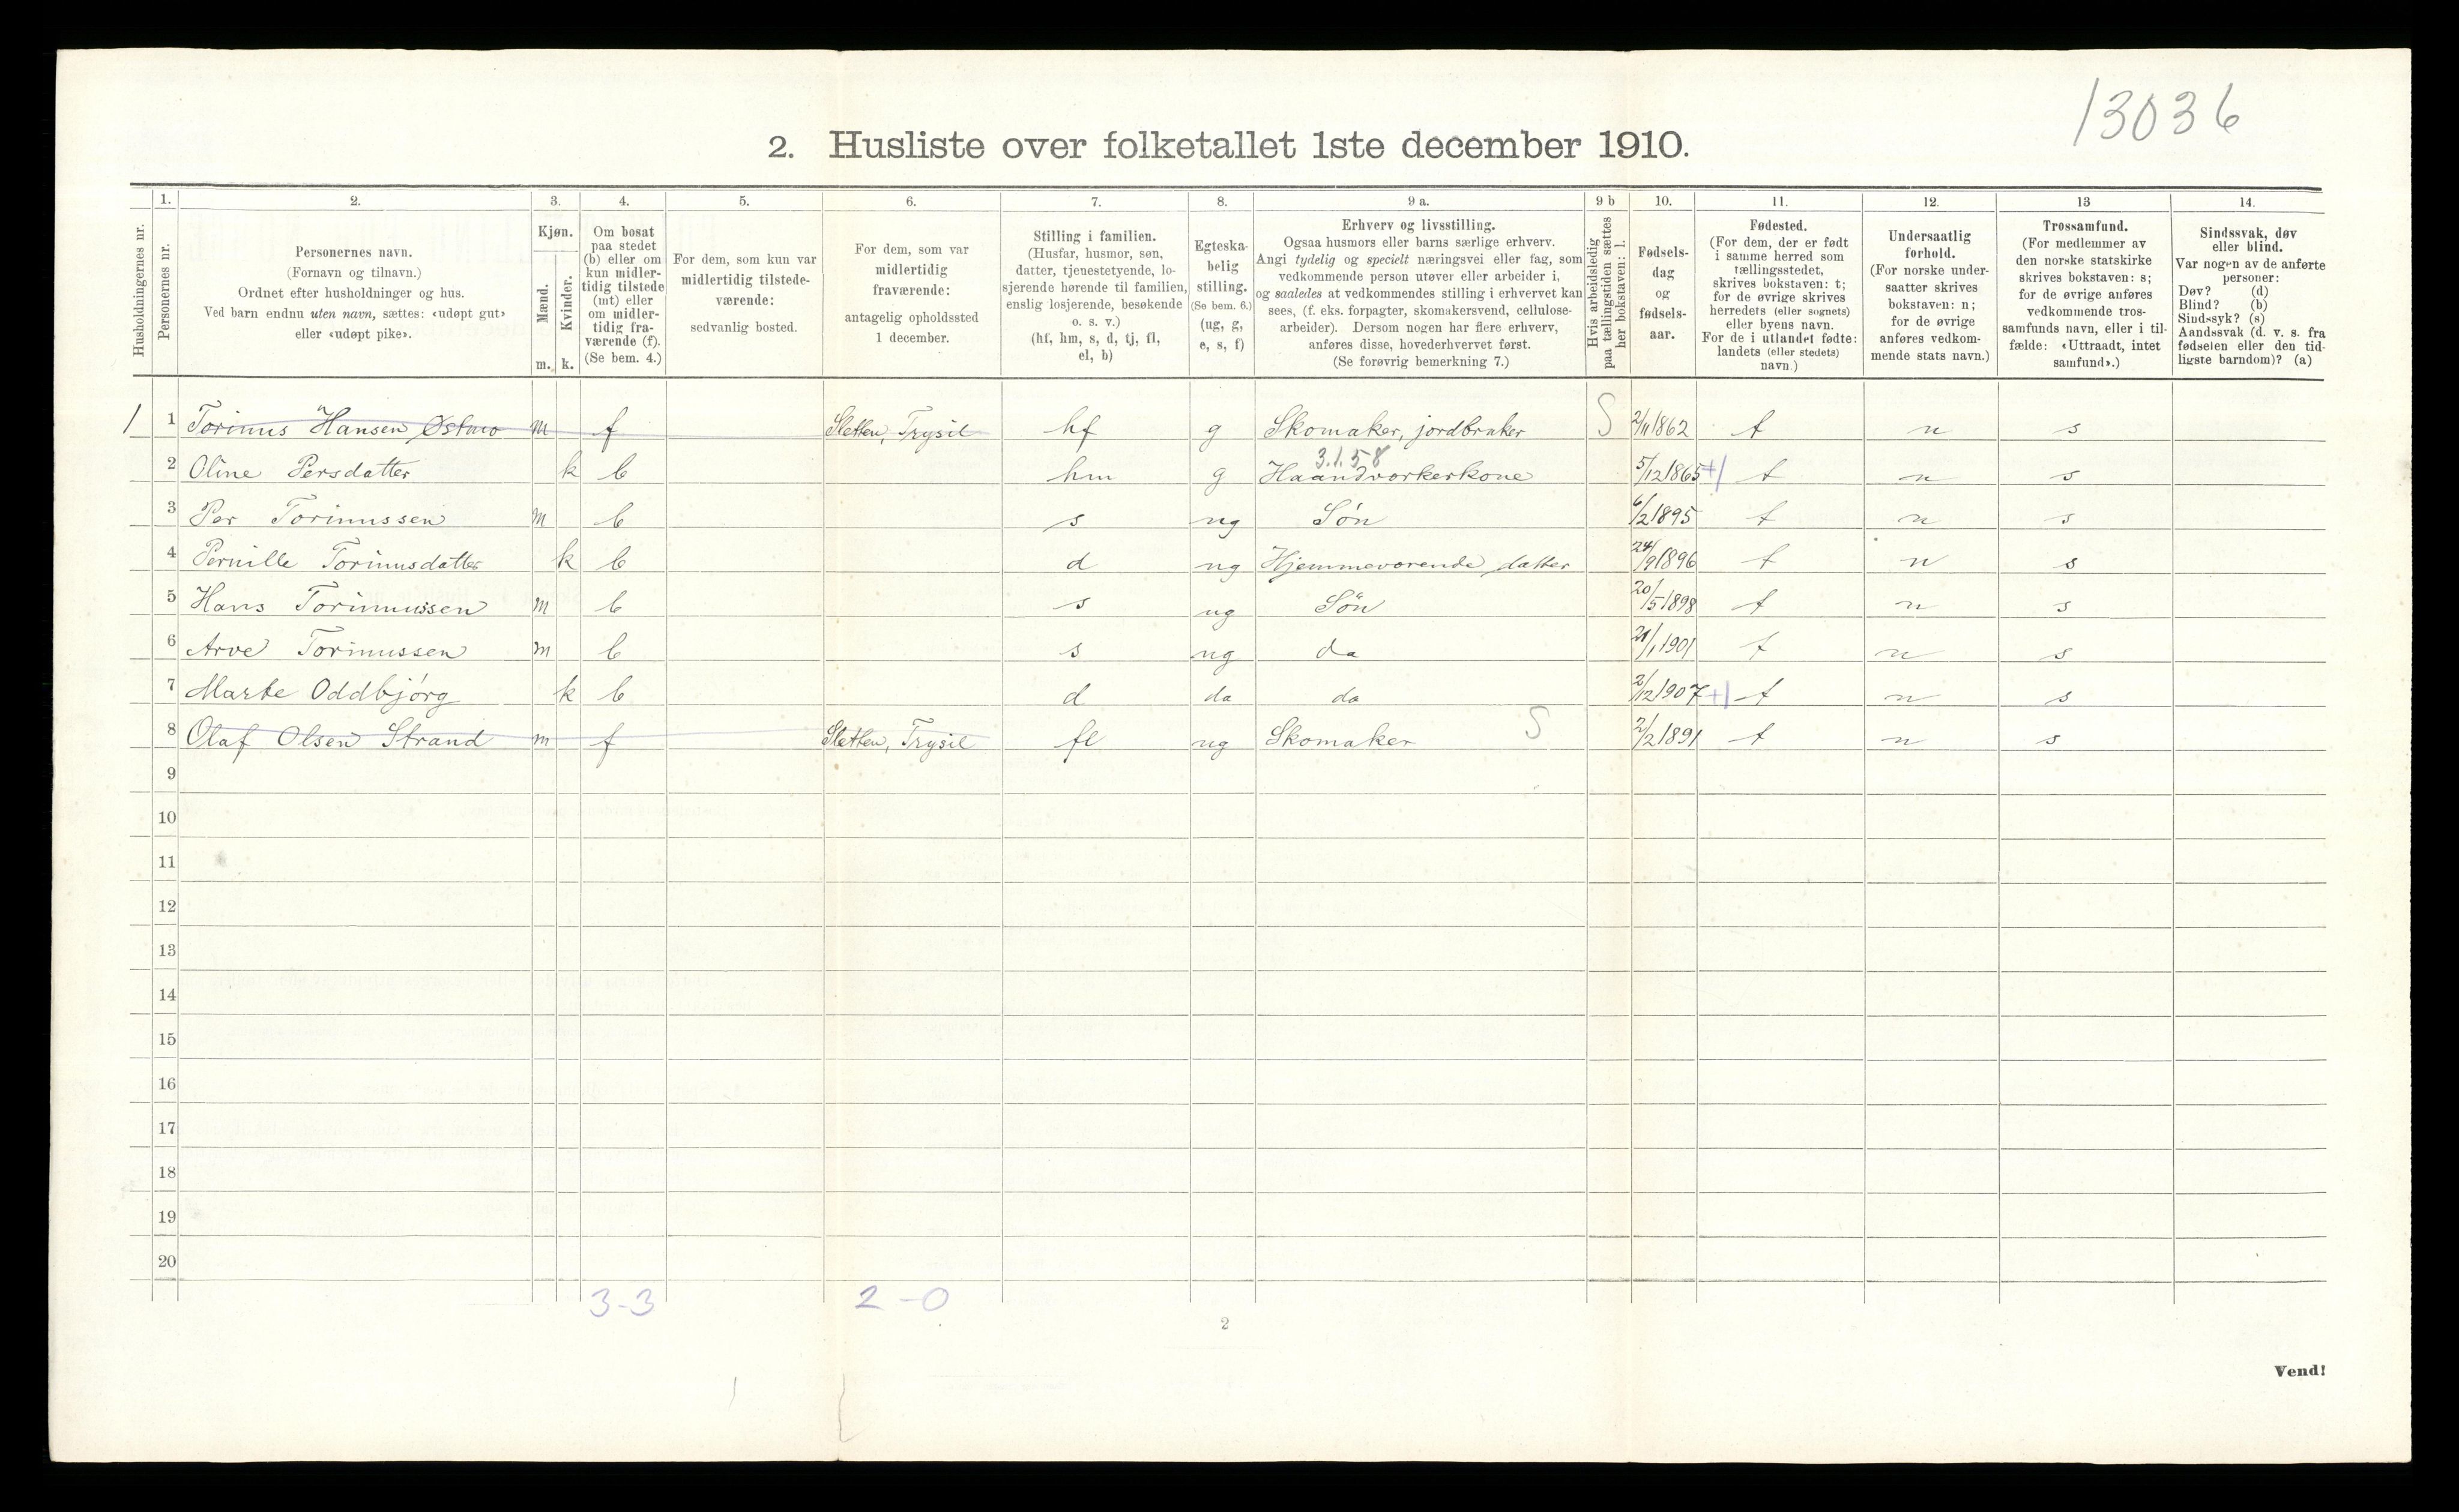 13036
2. Husliste over folketallet 1ste december 1910.
Husholdningernes nr.
1.
Personernes nr.
2.
Personernes navn.
(Fornavn og tilnavn.)
Ordnet efter husholdninger og hus.
Ved barn endnu uten navn, sættes: «udøpt gut»
eller «udøpt pike».
3.
Kjøn.
Mænd.
Kvinder.
m. k.
4.
Om bosat
paa stedet
(b) eller om
kun midler-
tidig tilstede
(mt) eller
om midler-
tidig fra-
værende (f).
(Se bem. 4.)
5.
For dem, som kun var
midlertidig tilstede-
værende:
sedvanlig bosted.
6.
For dem, som var
midlertidig
fraværende:
antagelig opholdssted
1 december.
7.
Stilling i familien.
(Husfar, husmor, søn,
datter, tjenestetyende, lo-
sjerende hørende til familien,
enslig losjerende, besøkende
o. s. v.)
(hf, hm, s, d, tj, fl,
el, b)
8.
Egteska-
belig
stilling.
(Se bem. 6.)
(ug, g,
e, s, f)
9 a.
Erhverv og livsstilling.
Ogsaa husmors eller barns særlige erhverv.
Angi tydelig og specielt næringsvei eller fag, som
vedkommende person utøver eller arbeider i,
og saaledes at vedkommendes stilling i erhvervet kan
sees, (f. eks. forpagter, skomakersvend, cellulose-
arbeider). Dersom nogen har flere erhverv,
anføres disse, hovederhvervet først.
(Se forøvrig bemerkning 7.)
9 b
Hvis arbeidsledig
paa tællingstiden sættes
her bokstaven: l.
10.
Fødsels-
dag
og
fødsels-
aar.
11.
Fødested.
(For dem, der er født
i samme herred som
tællingsstedet,
skrives bokstaven: t;
for de øvrige skrives
herredets (eller sognets)
eller byens navn.
For de i utlandet fødte:
landets (eller stedets)
navn.)
12.
Undersaatlig
forhold.
(For norske under-
saatter skrives
bokstaven: n;
for de øvrige
anføres vedkom-
mende stats navn.)
13
Trossamfund.
(For medlemmer av
den norske statskirke
skrives bokstaven: s;
for de øvrige anføres
vedkommende tros-
samfunds navn, eller i til-
fælde: «Uttraadt, intet
samfund».)
14.
Sindssvak, døv
eller blind.
Var nogen av de anførte
personer:
Døv? (d)
Blind? (b)
Sindssyk? (s)
Aandssvak (d. v. s. fra
fødselen eller den tid-
ligste barndom)? (a)
1 1 Torimus Hansen Østmo m f Sletten, Trysil hf g Skomaker, jordbruker S 2/11 1862 t n s
3.1.58
2 Oline Persdatter k b hm g Haandverkerkone 5/12 1865 +1 t n s
3 Per Torimussen m b s ug Søn 6/2 1895 t n s
4 Pernille Torimusdatter k b d ug Hjemmeværende datter 24/9 1896 t n s
5 Hans Torimussen m b s ug Søn 20/5 1898 t n s
6 Arve Torimussen m b s ug da 21/1 1901 t n s
7 Marte Oddbjörg k b d da da 2/12 1907 +1 t n s
8 Olaf Olsen Strand m f Sletten, Trysil fl ug Skomaker S 2/2 1891 t n s
9
10
11
12
13
14
15
16
17
18
19
20
3-3 2-0
2
Vend!